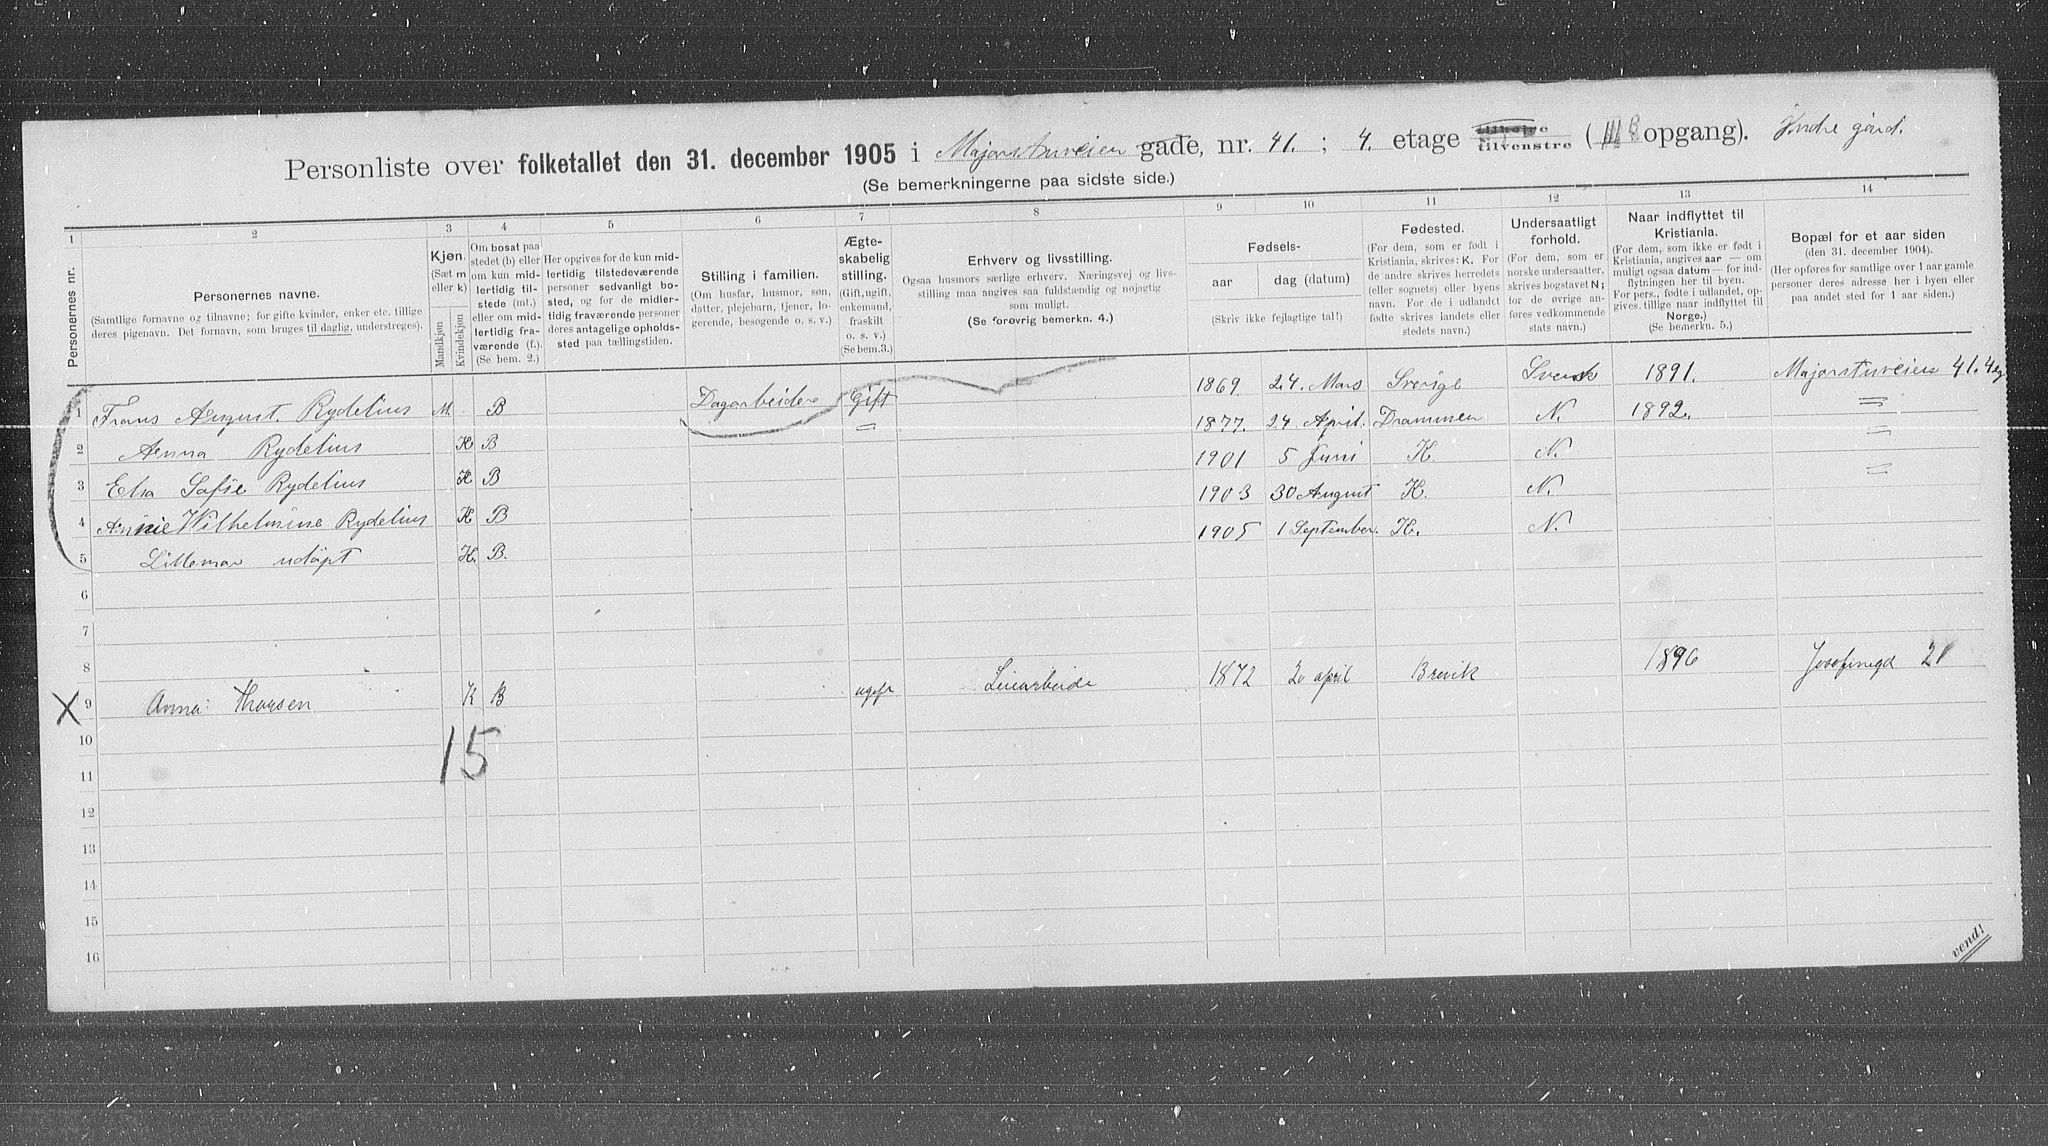 Personliste over folketallet den 31. december 1905 i Majorstuveien gade, nr. 41. ; 4. etage tilhøire tilvenstre ( III B opgang). Indre gård.
(Se bemerkningerne paa sidste side.)
1 2 3 4 5 6 7 8 9 10 11 12 13 14
Personernes nr.
Personernes navne.
(Samtlige fornavne og tilnavne; for gifte kvinder, enker etc. tillige
deres pigenavn. Det fornavn, som bruges til daglig, understreges).
Kjøn.
(Sæt m
eller k)
Mandkjøn
Kvindekjøn
Om bosat paa
stedet (b) eller
om kun mid-
lertidig til-
stede (mt.)
eller om mid-
lertidig fra-
værende (f.).
(Se bem. 2.)
Her opgives for de kun mid-
lertidig tilstedeværende
personer sedvanlig bo-
sted, og for de midler-
tidig fraværende personer
deres antagelige opholds-
sted paa tællingstiden.
Stilling i familien.
(Om husfar, husmor, søn,
datter, plejebarn, tjener, lo-
gerende, besøgende o. s. v.)
Ægte-
skabelig
stilling.
(Gift, ugift,
enkemand,
fraskilt
o. s. v.)
(Se bem. 3.)
Erhverv og livsstilling.
Ogsaa husmors særlige erhverv. Næringsvej og livs-
stilling maa angives saa fuldstændig og nøjagtig
som muligt.
(Se forøvrig bemerkn. 4.)
Fødsels-
aar dag (datum)
(Skriv ikke fejlagtige tal!)
Fødested.
(For dem, som er født i
Kristiania, skrives: K. For
de andre skrives herredets
(eller sognets) eller byens
navn. For de i udlandet
fødte skrives landets eller
stedets navn.)
Undersaatligt
forhold.
(For dem, som er
norske undersaatter,
skrives bogstavet N;
for de øvrige an-
føres vedkommende
stats navn.)
Naar indflyttet til
Kristiania.
(For dem, som ikke er født i
Kristiania, angives aar — om
muligt ogsaa datum — for ind-
flytningen her til byen.
For pers., fødte i udlandet, op-
gives tillige naar indflyttet til
Norge.)
(Se bemerkn. 5.)
Bopæl for et aar siden
(den 31. december 1904).
(Her opføres for samtlige over 1 aar gamle
personer deres adresse her i byen eller
paa andet sted for 1 aar siden.)
1 Frans August Rydelius M. B Dagarbeider Gift 1869 24. Mars Sverige Svensk 1891. Majorstuveien 41. 4 eg
2 Anna Rydelius K B = 1877. 24 April. Drammen N. 1892. =
3 Elsa Sofie Rydelius K B 1901 5 Juni K. N. =
4 Annie Wilhelmine Rydelius K B 1903 30 August K. N. =
5 Lillemor udøpt K. B. 1905 1 September. K. N.
6
7
8
X 9 Anna Thorsen K B ugift Leiearbeide 1872 20 april Brevik 1896 Josefinegd 21
10
15
11
12
13
14
15
16
vend!